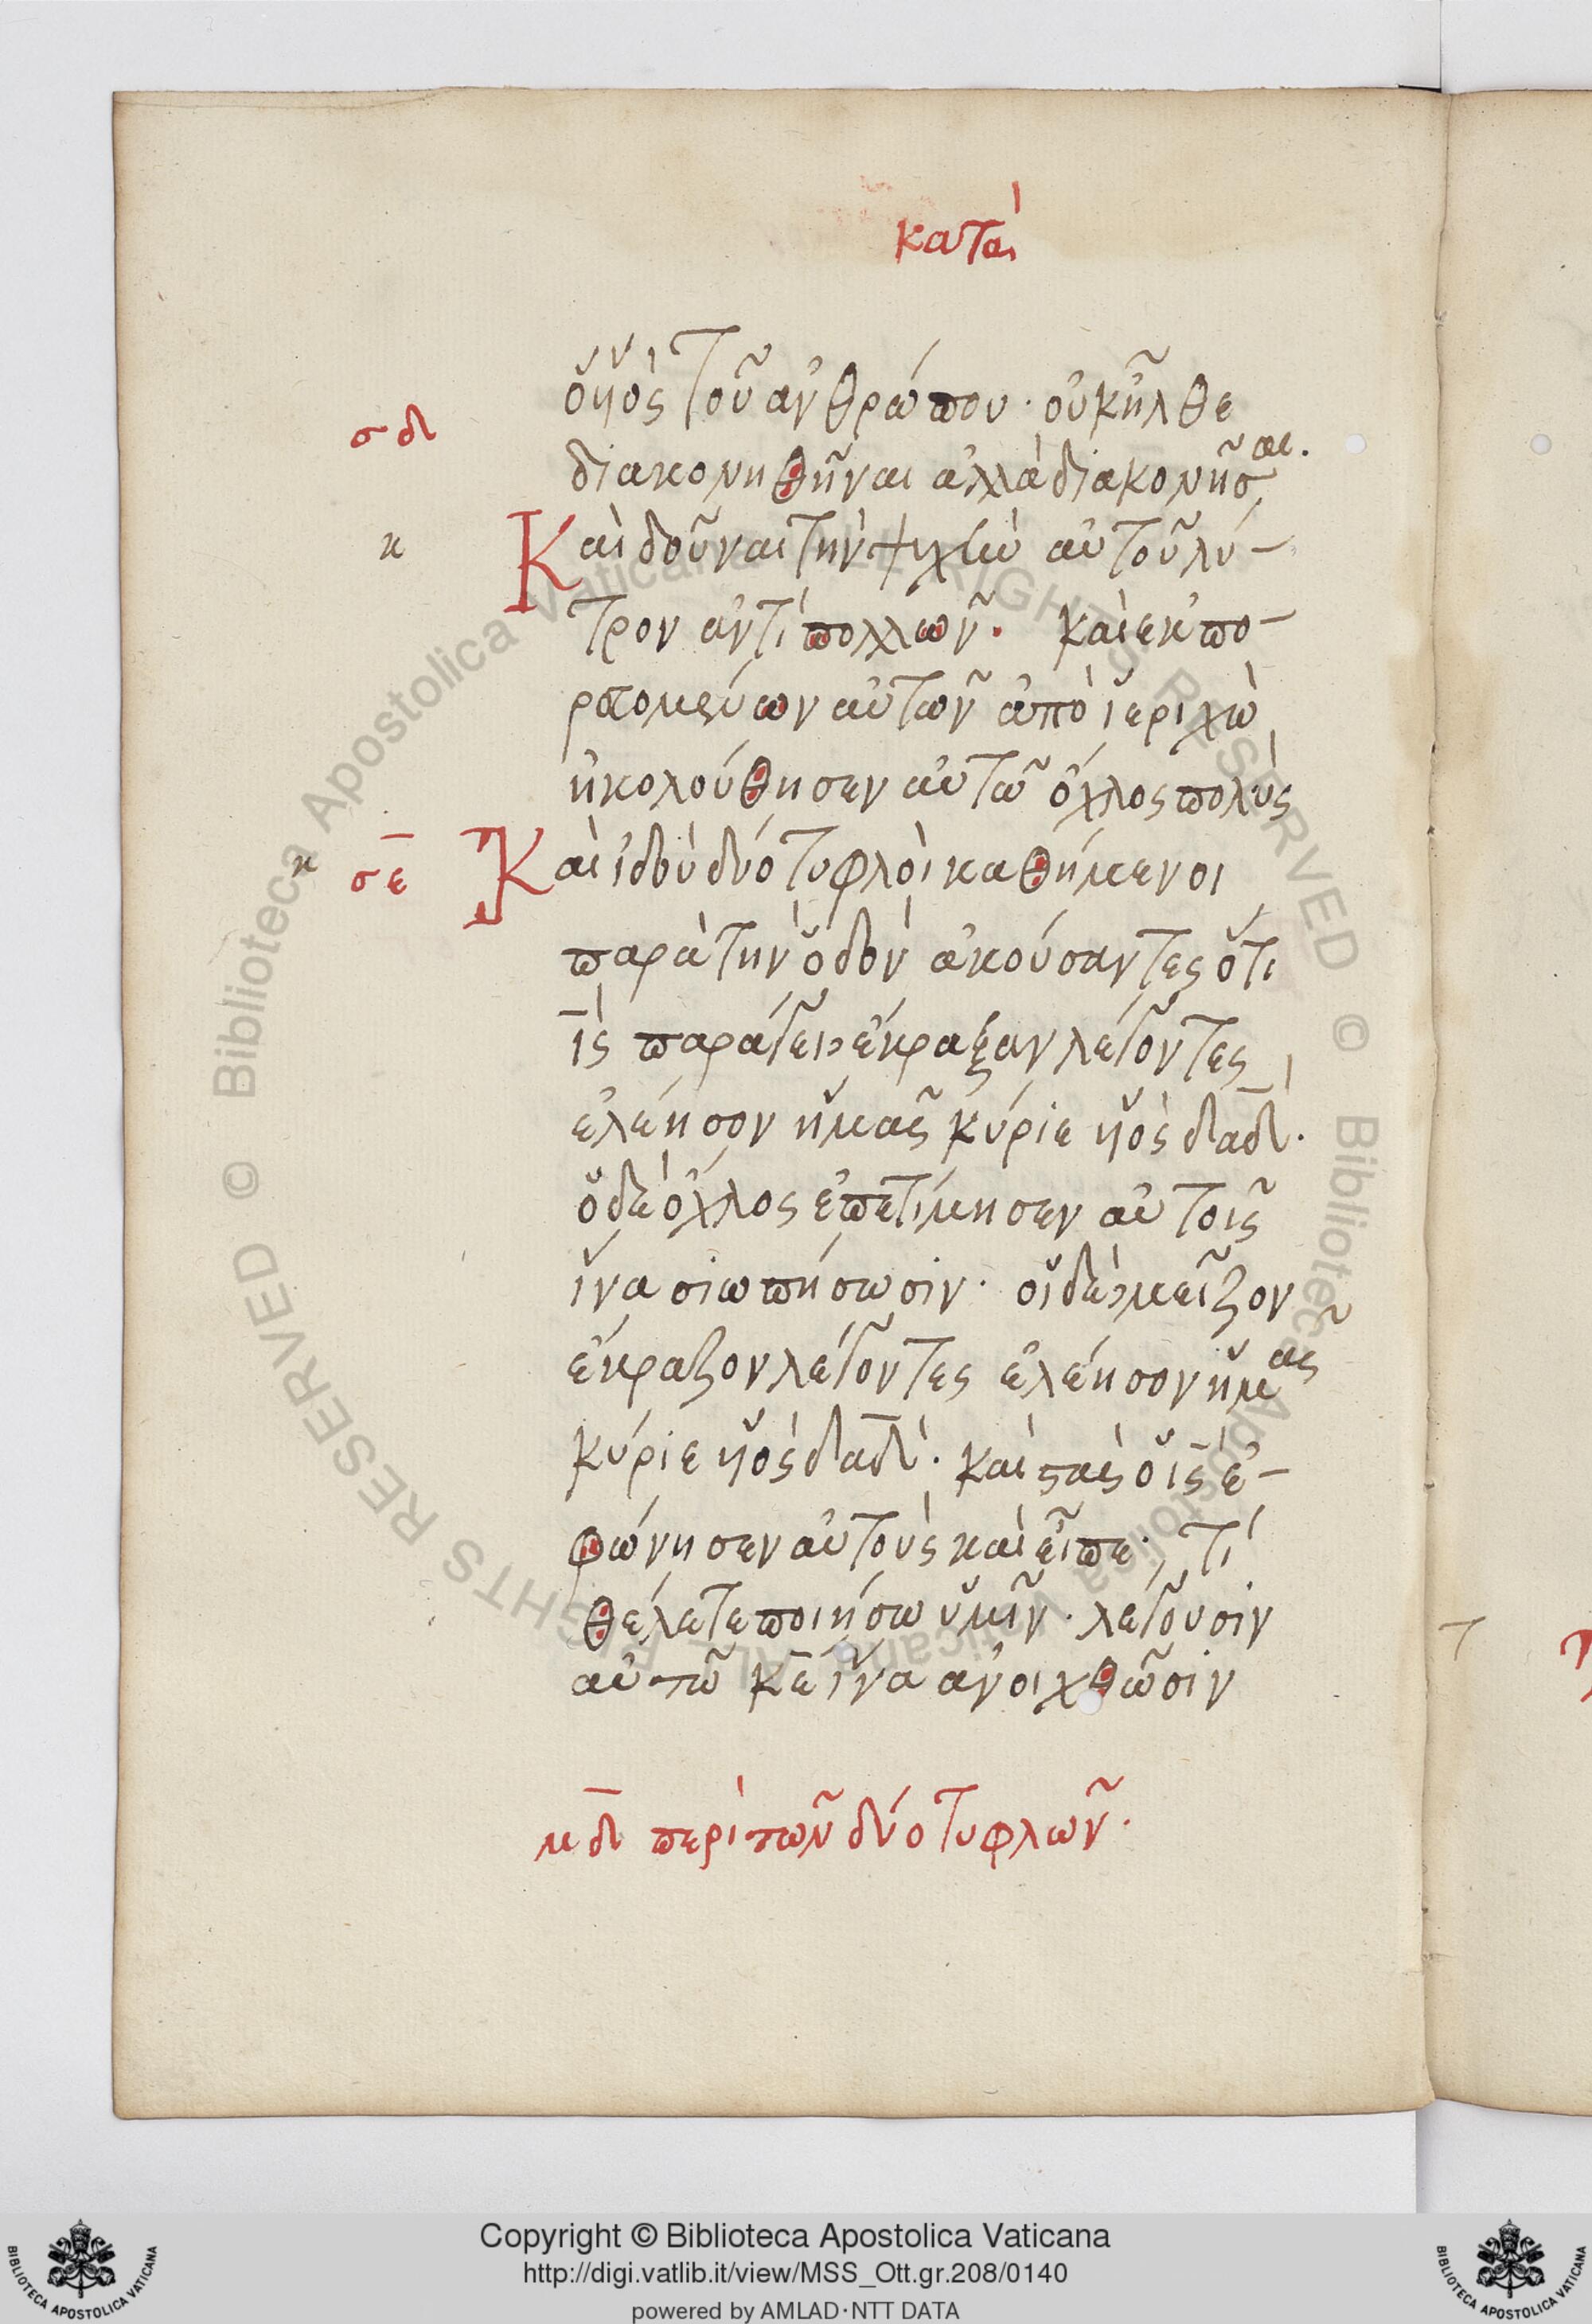 κατὰ
ὁ υἱὸς τοῦ ἀνθρώπου· οὐκ ἦλθε
σδ
διακονηθῆναι ἀλλὰ διακονῆσαι.
κ
Καὶ δοῦναι τὴν ψυχὴν αὐτοῦ λύ-
τρον ἀντὶ πολλῶν. καὶ ἐκπο-
ρευομένων αὐτῶν ἀπὸ ἱεριχὼ
ἠκολούθησεν αὐτῶ ὄχλος πολὺς
κ σε
Καὶ ἰδοὺ δύο τυφλοὶ καθήμενοι
παρὰ τὴν ὁδὸν ἀκούσαντες ὅτι
ις παράγει ἔκραξαν λέγοντες
ἐλέησον ἡμᾶς κύριε υἱὸς δαδ.
ὁ δὲ ὄχλος ἐπετίμησεν αὐτοῖς
ἵνα σιωπήσωσιν· οἱ δὲ μεῖζον
ἔκραζον λέγοντες ἐλέησον ἡμᾶς
κύριε υἱὸς δαδ. καὶ στὰς ὁ ις ἐ-
φώνησεν αὐτοὺς καὶ εἶπε· τί
θέλετε ποιήσω ὑμῖν· λέγουσιν
αὐτῶ κε ἵνα ἀνοιχθῶσιν
μδ περὶ τῶν δύο τυφλῶν.
© Biblioteca Apostolica Vaticana ALL RIGHTS RESERVED
© Biblioteca Apostolica Vaticana ALL RIGHTS RESERVED
Copyright © Biblioteca Apostolica Vaticana
http://digi.vatlib.it/view/MSS_Ott.gr.208/0140
powered by AMLAD·NTT DATA
BIBLIOTECA APOSTOLICA VATICANA
BIBLIOTECA APOSTOLICA VATICANA